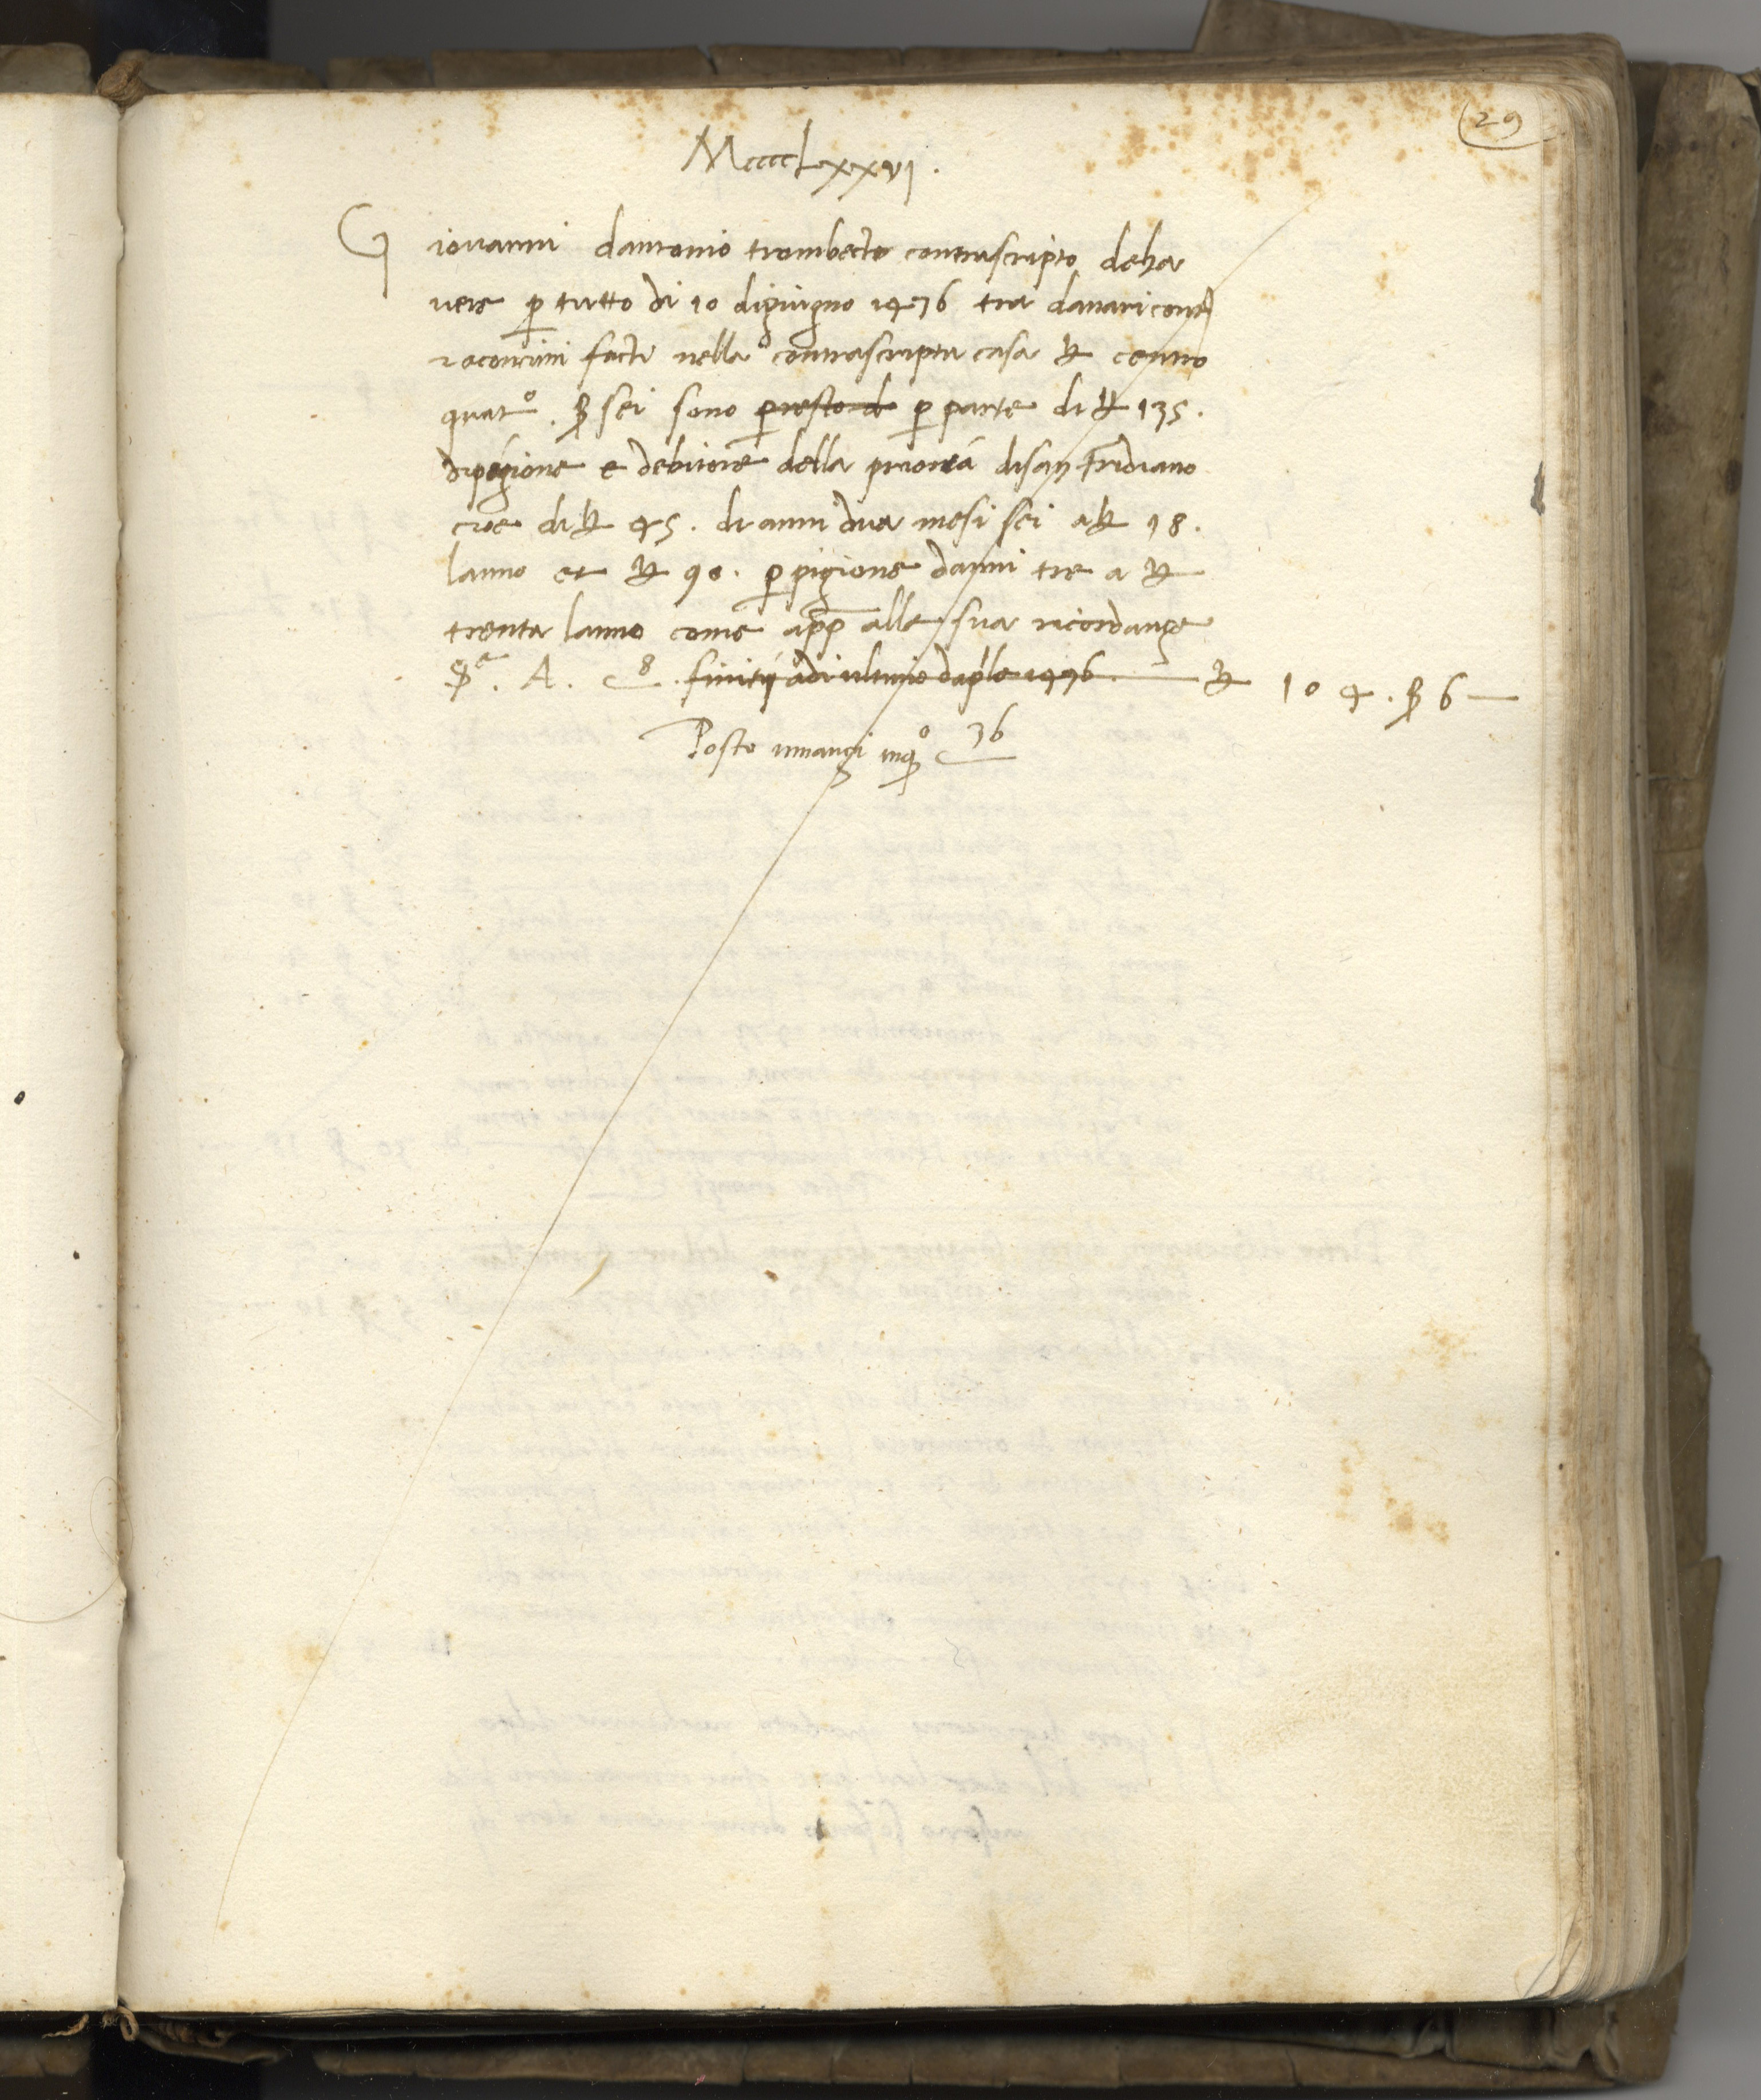 29
MccccLxxvi.
Giovanni dantonio trombecto contrascripto deha
vere p tutto di 10 digiugno 1476 tra danari cont
racconcimi facti nella contrascripta casa ₤ cento
quatº. ß sei sono p resto d p parte di ₤ 135.
dipigione e debitore della prioria disan fridiano
cioe di ₤ 45. di anni dua mesi sei a ₤ 18.
lanno et ₤ 90. p pigione danni tre a ₤
trenta lanno come app alle sua ricordanze
ßª. A. c 8. finiti adi ultimo daple 1476. ₤ 104. ß 6
Posto innanzi inqº c 36